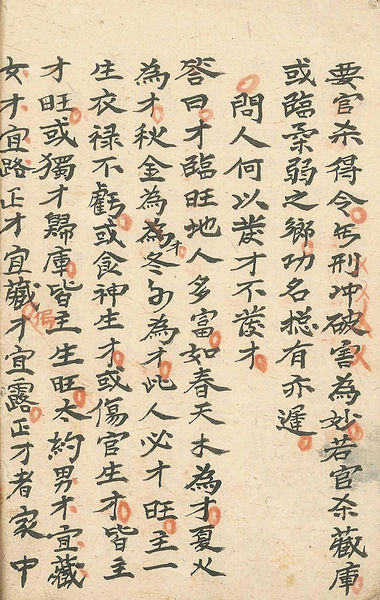 要官杀得令無刑冲破害為妙若官杀藏庫
或臨衰弱之鄉功名總有亦遲
問人何以發才不發才
答曰才臨旺地人多富如春天木為才夏火
為才秋金為為才冬水為才此人必才旺主一
生衣禄不虧或食神生才或傷官生才皆主
才旺或獨才歸庫皆主生旺大約男才宜藏
女才宜路正才宜藏偏才宜露正才者家中